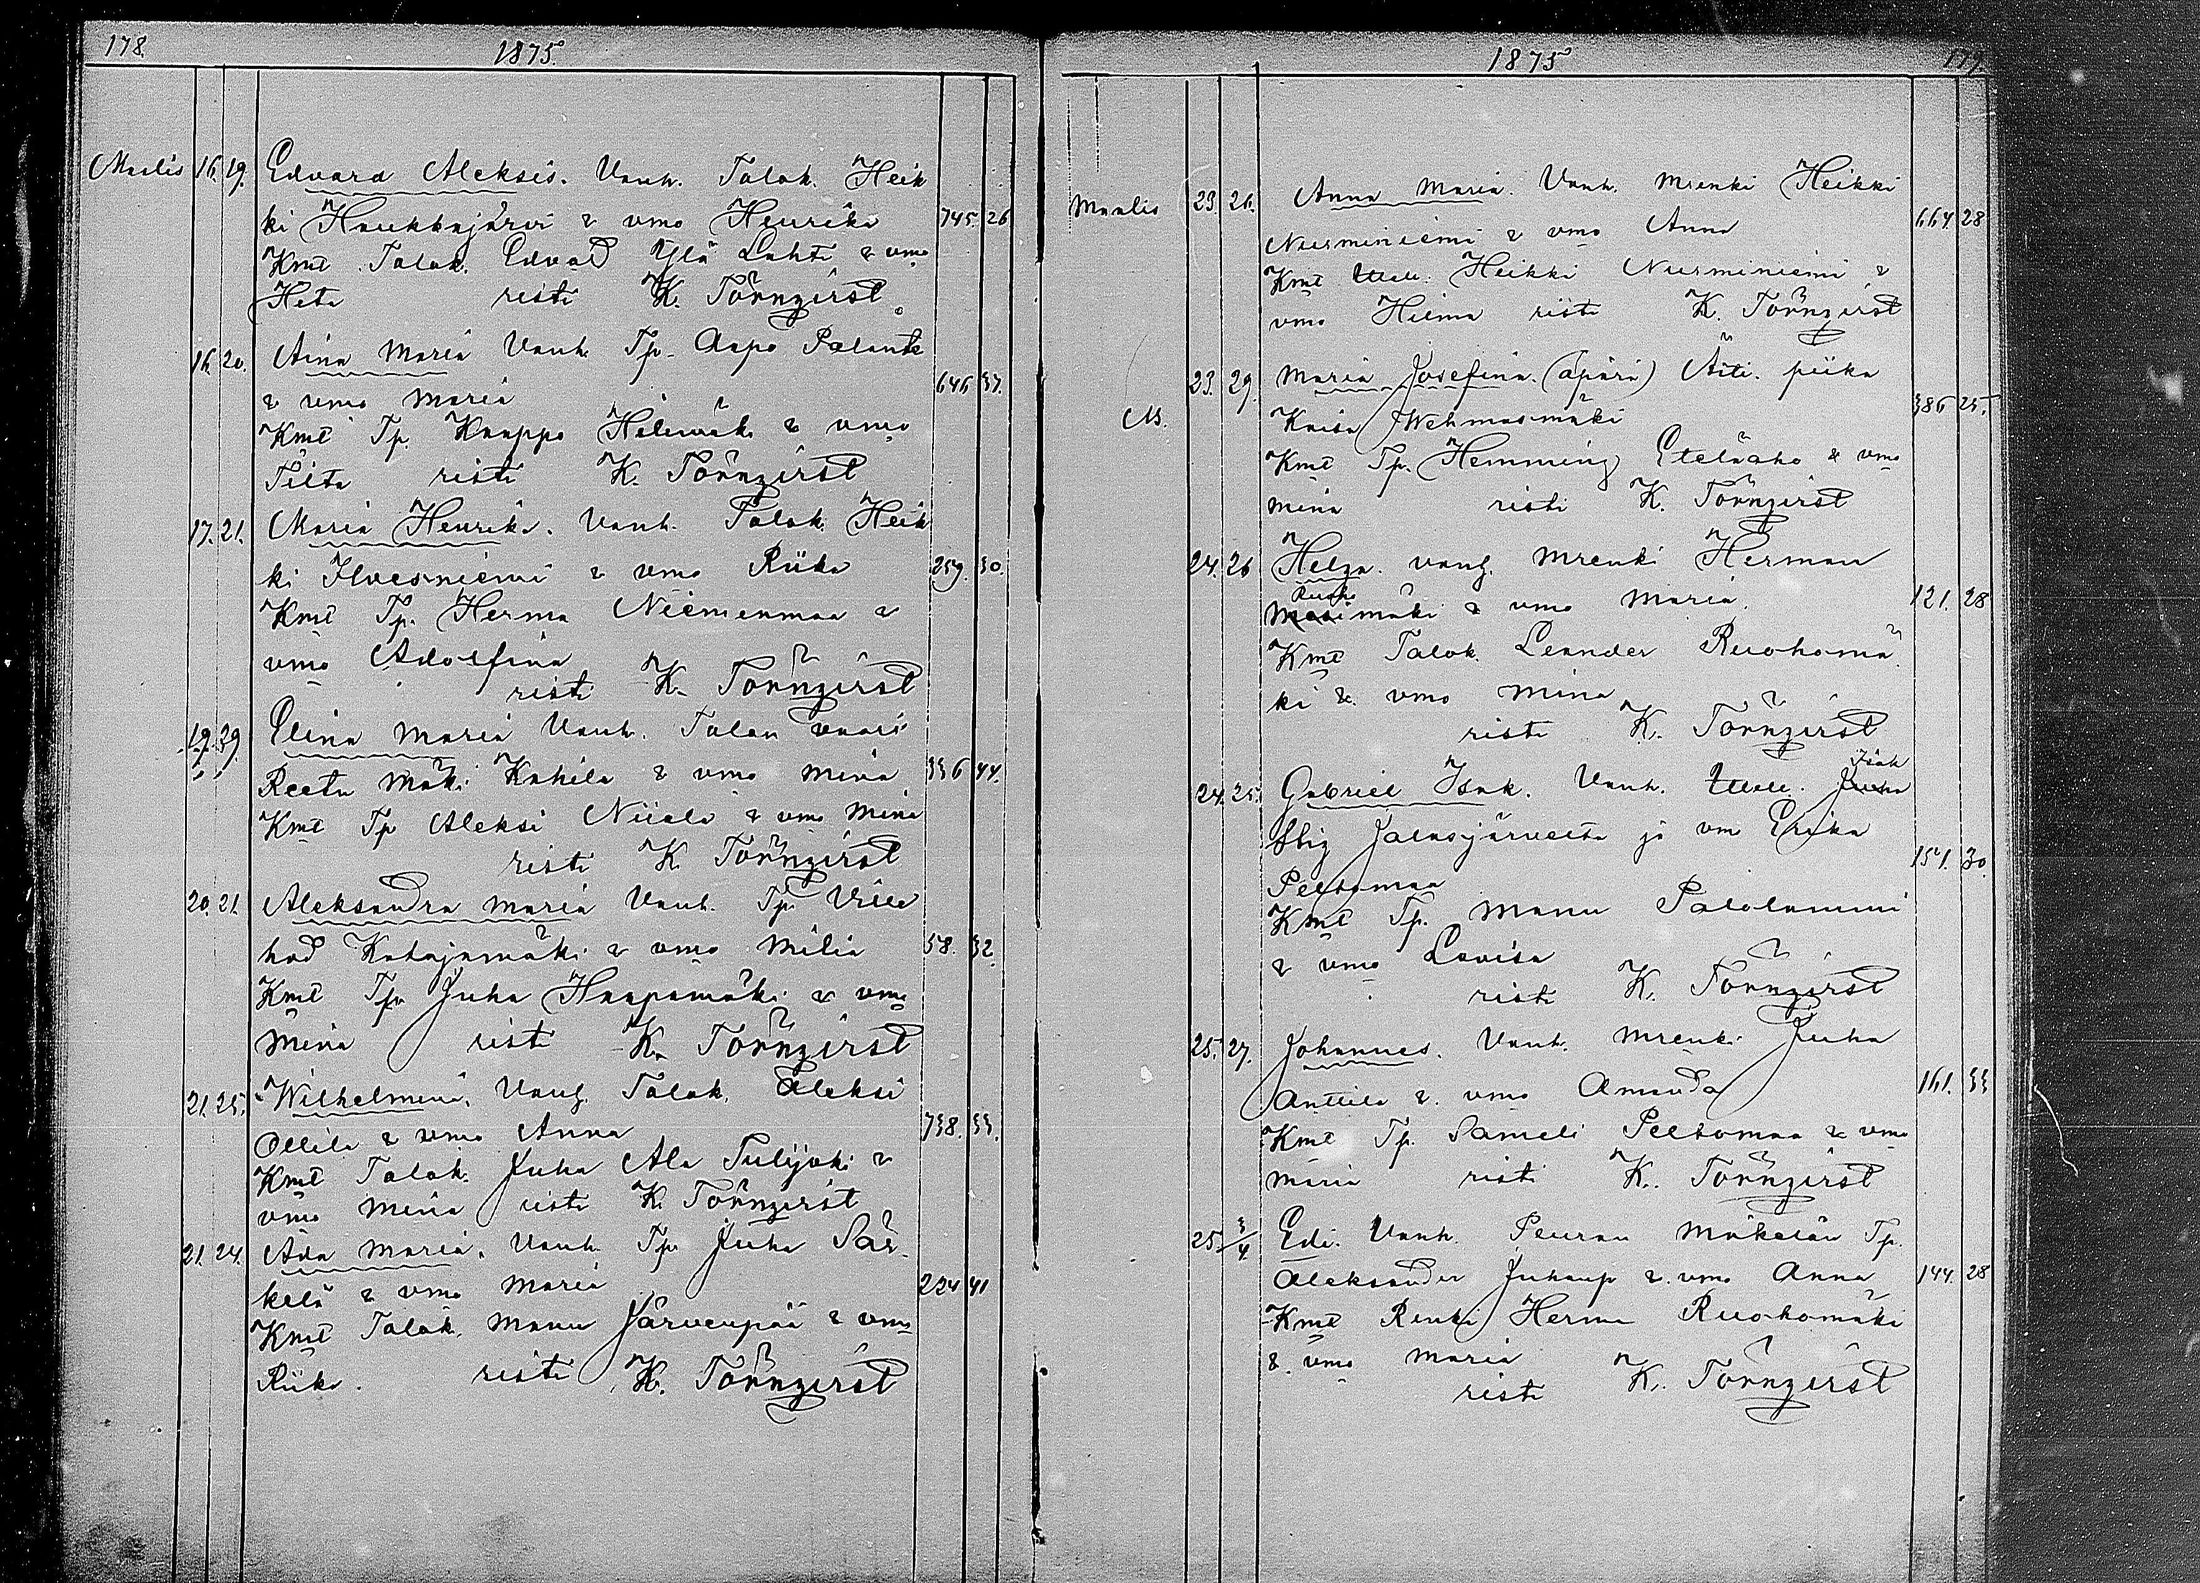 178.
1875.
Maalis 16. 19. Edvard Aleksis. Vanh. Talok. Heik
ki Haukkajärvi & vmo Henrika 745. 26
Kmt Talok. Edvard Ylä Lahti & vmo
Heta risti K. Törnqvist
16. 20. Aina Maria Vanh. Tp. Aapo Palanti
& vmo Maria 646 37.
Kmt Tp. Kaappo & vmo
Tilta risti K. Törnqvist
17. 21. Maria Henrika. Vanh. Talok. Heik
ki Ilvesniemi & vmo Riika 259. 30.
Kmt Tp. Herma Niemenmaa &
vmo Adolfina
risti K. Törnqvist
19. 29. Elina Maria Vanh. Talon vaari
Reetu Mäki Kahila & vmo Mina 336 44.
Kmt Tp Aleksi Niiala & vmo Mina
risti K Törnqvist
20. 21. Aleksandra Maria Vanh. Tp. Viile
had Katajamäki & vmo Milia 58. 32.
Kmt Tp Juha Haapamäki & vmo
Mina risti K. Törnqvist
21. 25. Wilhelmina. Vanh. Talok. Aleksi
Ollila & vmo Anna 738. 33.
Kmt Talok. Juha Ala Tulijoki &
vmo Mina risti K. Törnqvist
21. 24. Ada Maria. Vanh. Tp. Juha Sär-
kelä & vmo Maria 224 41
Kmt Talok. Manu Järvenpää & vmo
Riika. risti K. Törnqvist
1875
Maalis 23. 26. Anna Maria. Vanh. Mrenki Heikki
Nurminiemi & vmo Anna 664 28
Kmt Heikki Nurminiemi &
vmo Hilma risti K. Törnqvist
23. 29. Maria Josefina. (äpärä) Äiti. piika
Kaisa Wehmasmäki 386 25.
Kmt Tp. Hemming Eteläaho & vmo
Mina risti K. Törnqvist
24. 26 Helga. vanh. Mrenki Herman
Ruoho
mäki & vmo Maria. 121. 28
Kmt Talok. Leander Ruohomä
ki & vmo Mina
risti K. Törnqvist
Isak
24. 25. Gabriel Isak. Vanh. Juha
Stig Jalasjärvelta ja vm Erika
Peltomaa 151. 30.
Kmt Tp. Manu Palolammi
& vmo Lovisa
risti K. Törnqvist
25. 27. Johannes. Vanh. Mrenki Juha
Anttila & vmo Amanda 161. 33
Kmt Tp. Sameli Peltomaa & vmo
Maria risti K. Törnqvist
25. 3/4. Edi. Vanh. Peuran Mäkelän Tp.
Aleksander Juhanp & vmo Anna 144. 28
Kmt Renki Herma Ruohomäki
& vmo Maria
risti K. Törnqvist